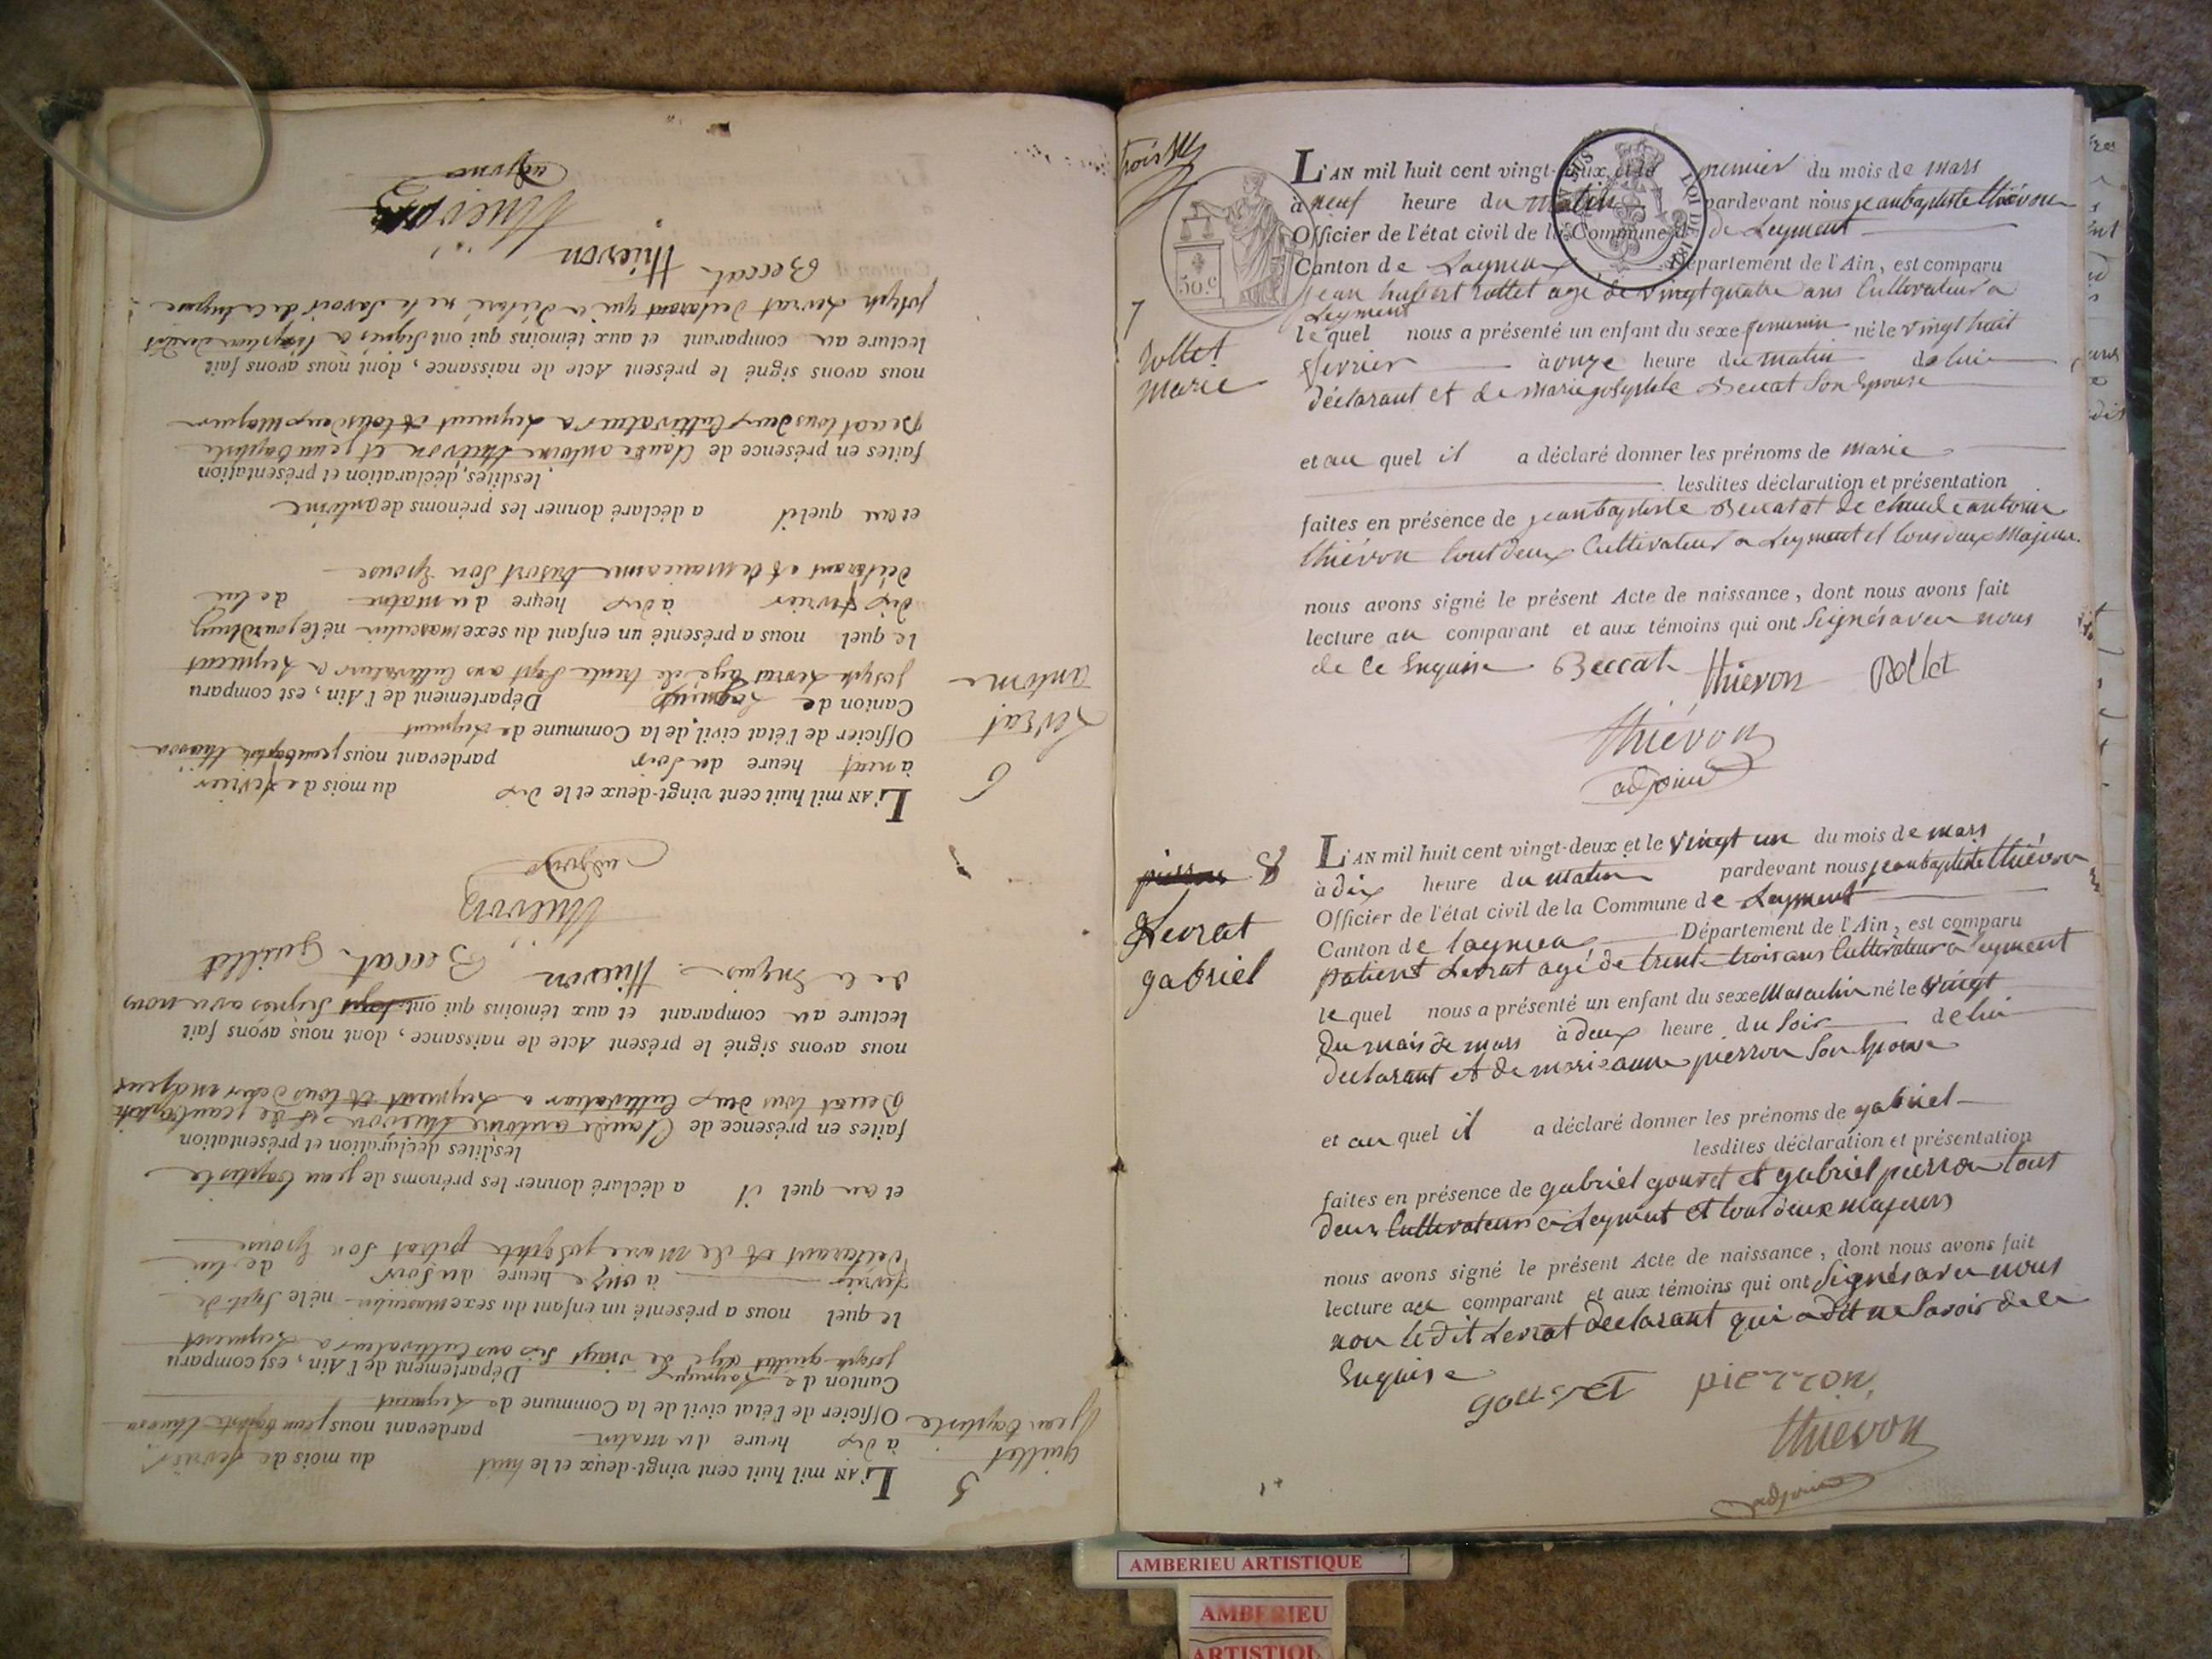 5
guillet
jean baptiste
L'AN mil huit cent vingt-deux et le huit du mois de fevrier
à dix heure du matin pardevant nous jean baptiste thiévon
Officier de l'état civil de la Commune de Leyment
Canton de Lagnieu Département de l'Ain, est comparu
joseph guillet agé de vingt six ans Cultivateur a Leyment
le quel nous a présenté un enfant du sexe masculin né le Sept de
fevrier à onze heure du Soir de lui
Déclarant et de Marie josephte pitrat Son Epouse
et au quel il a déclaré donner les prénoms de jean baptiste
lesdites déclaration et présentation
faites en présence de Claude antoine thievon et de jean baptiste
Beccat tous deux Cultivateur a Leyment et tous deux majeur
nous avons signé le présent Acte de naissance, dont nous avons fait
lecture au comparant et aux témoins qui ont Signés avec nous
de ce Enquis Thievon Beccat Guillet
thiévon
adjoint
6
Levrat
antoine
L'AN mil huit cent vingt-deux et le dix du mois de fevrier
à neuf heure du Soir pardevant nous jean baptiste thiévon
Officier de l'état civil de la Commune de Leyment
Canton de Lagnieu Département de l'Ain, est comparu
joseph Levrat agé de trente Sept ans Cultivateur a Leyment
le quel nous a présenté un enfant du sexe masculin né le jourdhuy
dix fevrier à dix heure du matin de lui
déclarant et de marianne Son Epouse
et au quel il a déclaré donner les prénoms de antoine
lesdites, déclaration et présentation
faites en présence de Claude antoine thievon et jean baptiste
Beccat tous deux Cultivateur a Leyment et tous deux Majeur
nous avons signé le présent Acte de naissance, dont nous avons fait
lecture au comparant et aux témoins qui ont Signés a l'exeption dudit
joseph Levrat declarant qui a déclaré ne le Savoir de ce Enquis
Beccat thievon
Thiévon
adjoint
trois
50.c
7
rollet
Marie
L'AN mil huit cent vingt-deux et le premier du mois de mars
à neuf heure du matin pardevant nous jean baptiste thiévon
Officier de l'état civil de la Commune de Leyment
Canton de Lagnieu Département de l'Ain, est comparu
jean hubert rollet agé de vingt quatre ans Cultivateur a
Leyment
le quel nous a présenté un enfant du sexe femenin né le vingt huit
fevrier à onze heure du matin de lui
déclarant et de marie josephte Beccat Son Epouse
et au quel il a déclaré donner les prénoms de marie
lesdites déclaration et présentation
faites en présence de jean baptiste Beccat et de claude antoine
thiévon tout deux Cultivateur a Leyment et tous deux Majeur
nous avons signé le présent Acte de naissance, dont nous avons fait
lecture au comparant et aux témoins qui ont Signés avec nous
de ce Enquis Beccat thievon Rollet
thiévon
adjoint
pierron 8
Levrat
gabriel
L'AN mil huit cent vingt-deux et le vingt un du mois de mars
à dix heure du matin pardevant nous jean baptiste thiévon
Officier de l'état civil de la Commune de Leyment
Canton de lagnieu Département de l'Ain, est comparu
patient Levrat agé de trente trois ans Cultivateur à leyment
le quel nous a présenté un enfant du sexe Masculin né le vingt
du mois de mars à deux heure du Soir de lui
declarant et de marianne pierron Son Epouse
et au quel il a déclaré donner les prénoms de gabriel
lesdites déclaration et présentation
faites en présence de gabriel gouvet et gabriel pierron tout
deux Cultivateurs a Leyment et tout deux majeurs
nous avons signé le présent Acte de naissance, dont nous avons fait
lecture au comparant et aux témoins qui ont Signés avec nous
non le dit Levrat declarant qui a dit ne Savoir de ce
Enquise
gouvet pierron
thiévon
adjoint
AMBERIEU ARTISTIQUE
AMBERIEU
ARTISTIQUE